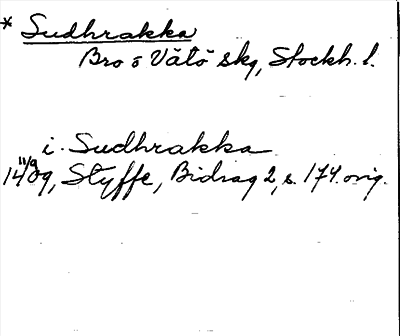 * Sudhrakka
Bro o Vätö skg, Stockh. l.
i. Sudhrakka
14 11/9 09, Styffe, Bidrag 2, s. 174. orig.